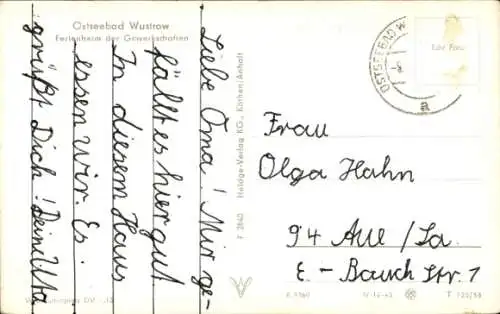 Ostseebad Wustrow
Ferienheim der Gewerkschaften
Liebe Oma! Mir ge-
fällt es hier gut.
In diesem Haus
essen wir. Es
grüßt Dich! Deine Uta
F 2840 Heldge-Verlag KG., Köthen/Anhalt
OSTSEEBAD W
a
Frau
Olga Hahn
94 Aue/Sa.
E.-Bausch Str. 1